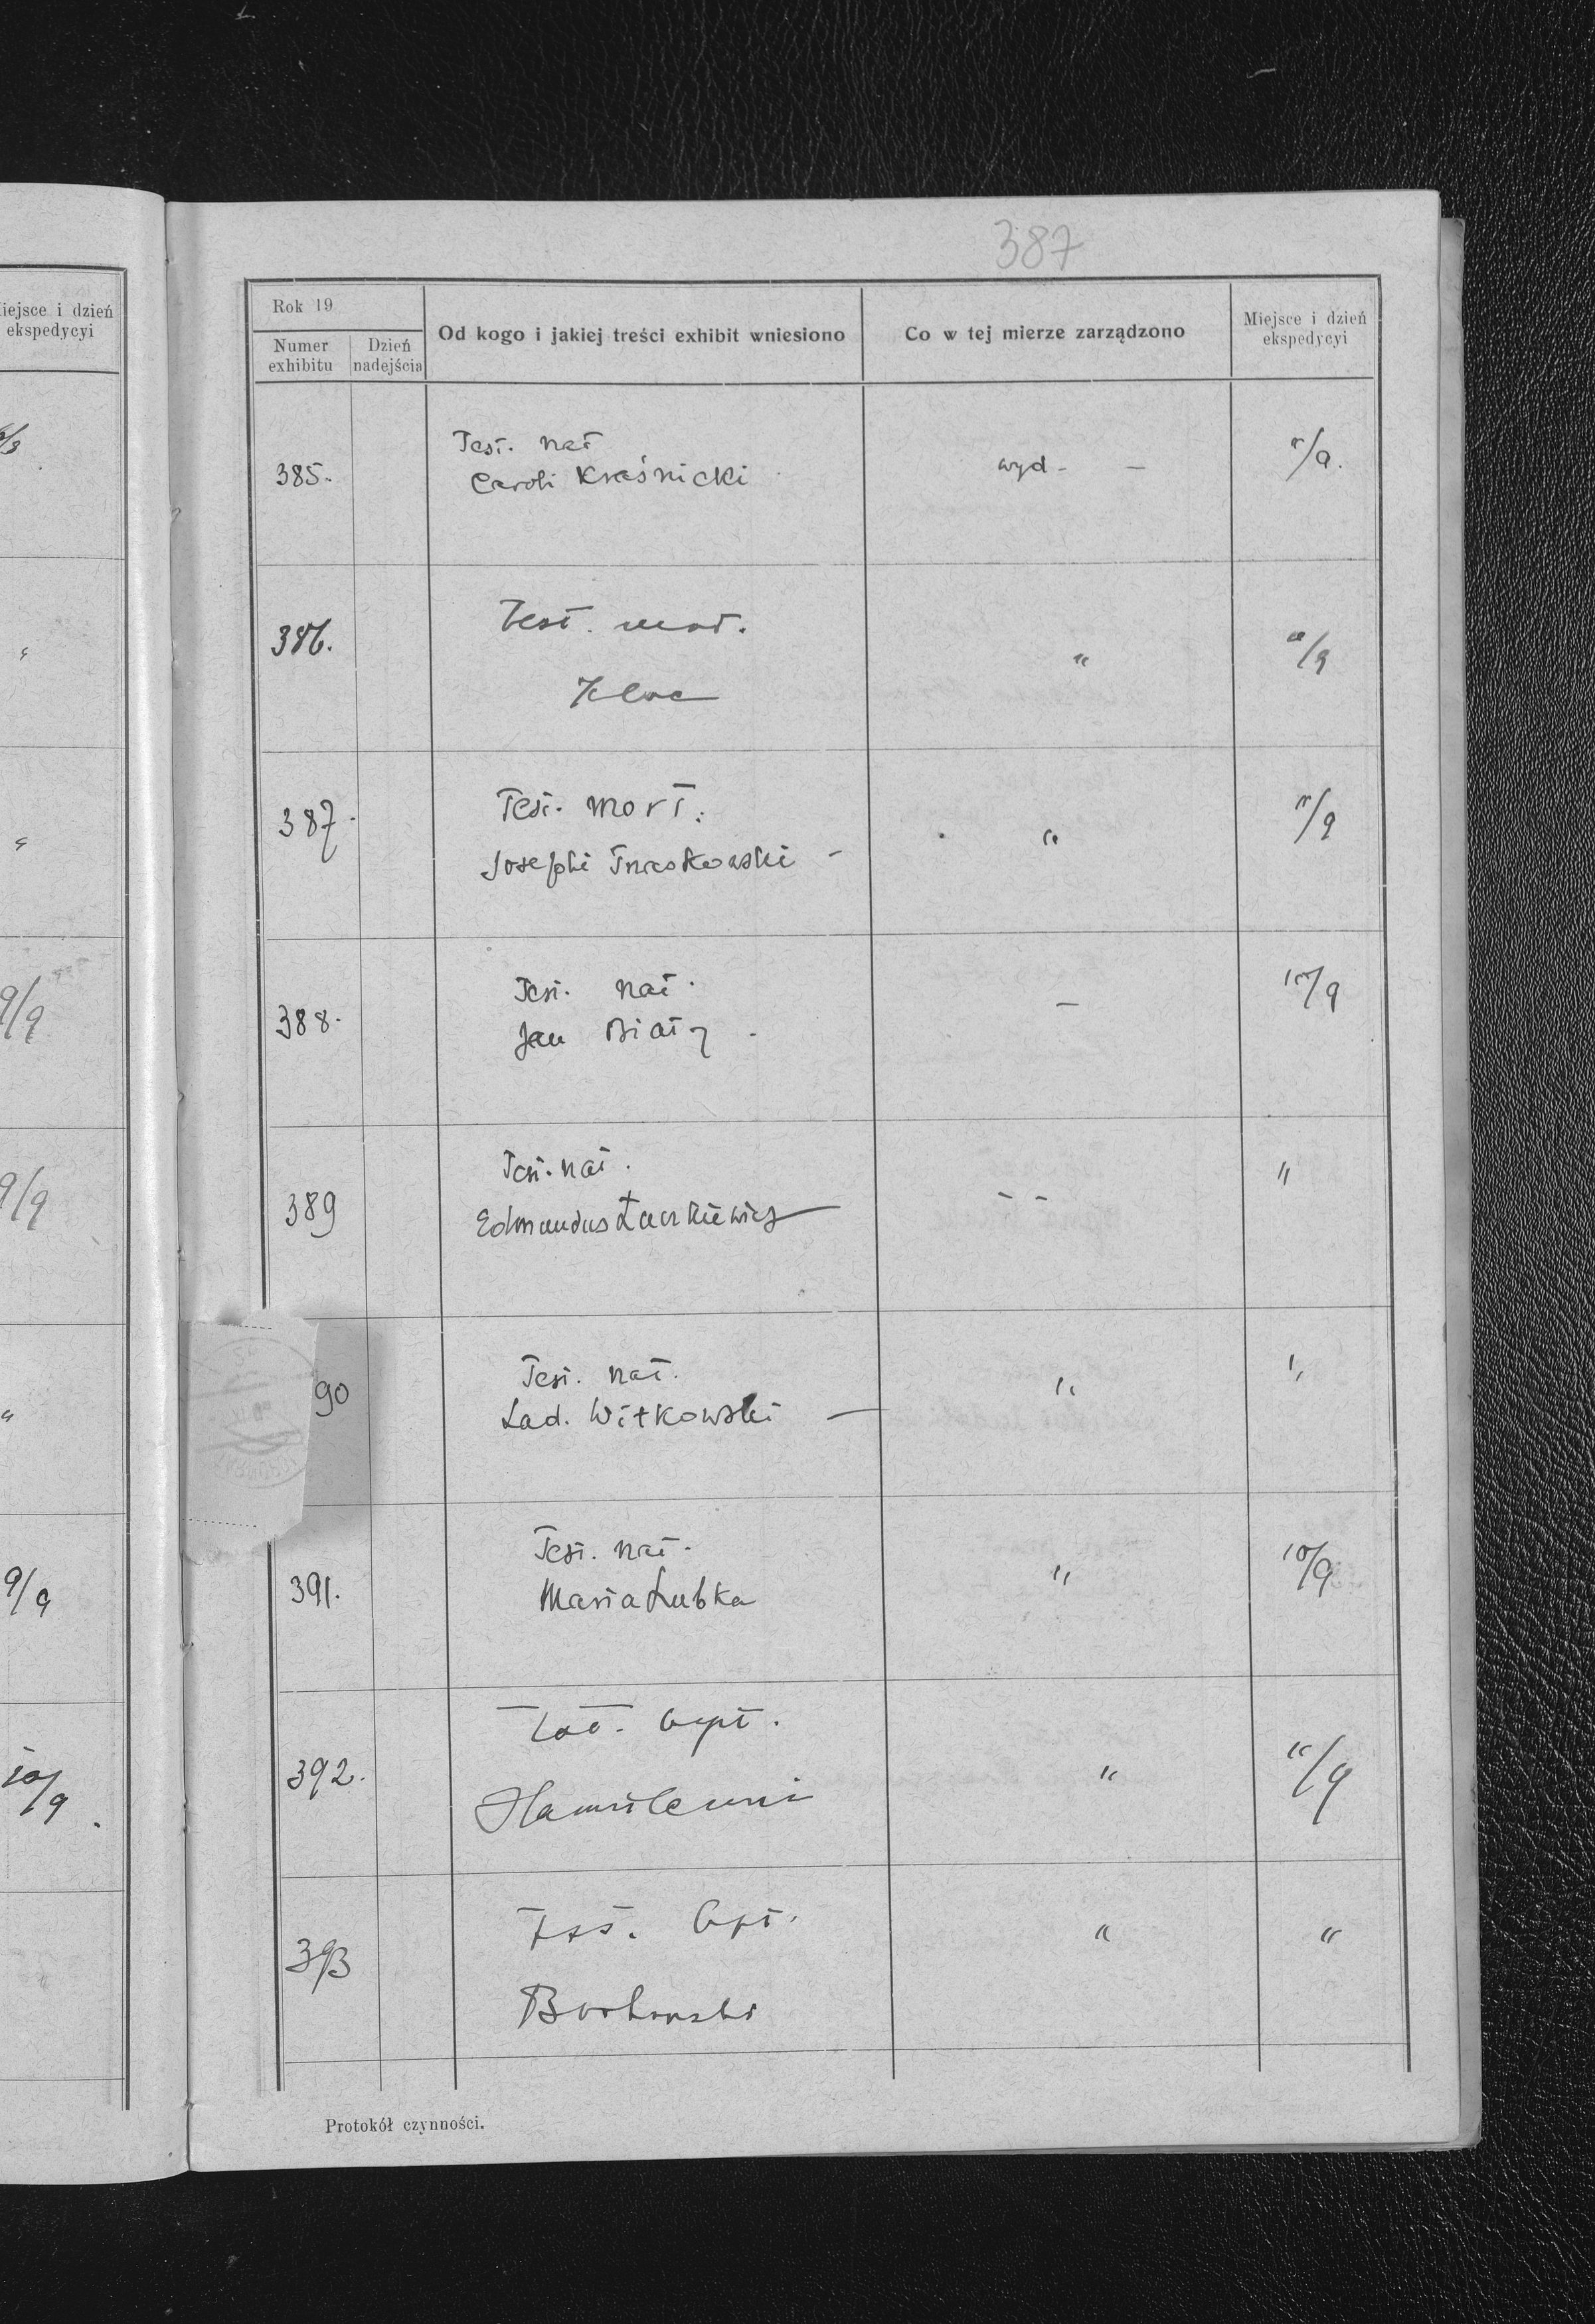 iejsce i dzień
ekspedycyi
9/9
9/9
9/9
10/9
387
Rok 19
Numer
exhibitu
Dzień
nadejścia
Od kogo i jakiej treści exhibit wniesiono
Co w tej mierze zarządzono
Miejsce i dzień
ekspedycyi
385.
Test. nat
Caroli Kraśnicki
wyd - -
"/9.
386.
Test. mort.
Kloc
"
"/9
387.
Test. mort.
Josephi -
"
"/9
388.
Test. nat.
Jan Biały -
-
/9
389
Test. nat.
Edmundus
- -
"
90
Test. nat.
Lad. Witkowski -
"
"
391.
Test. nat.
Maria Łubka
"
10/9
392.
Test. bapt.
"
"/9
393
Test. bapt.
"
"
Protokół czynności.